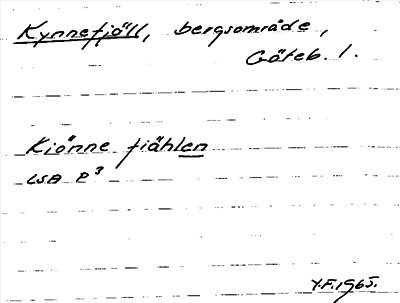 Kynnefjäll, bergsområde,
Göteb. l.
Kiönne fiählen
LSA P³
Y.F. 1965.